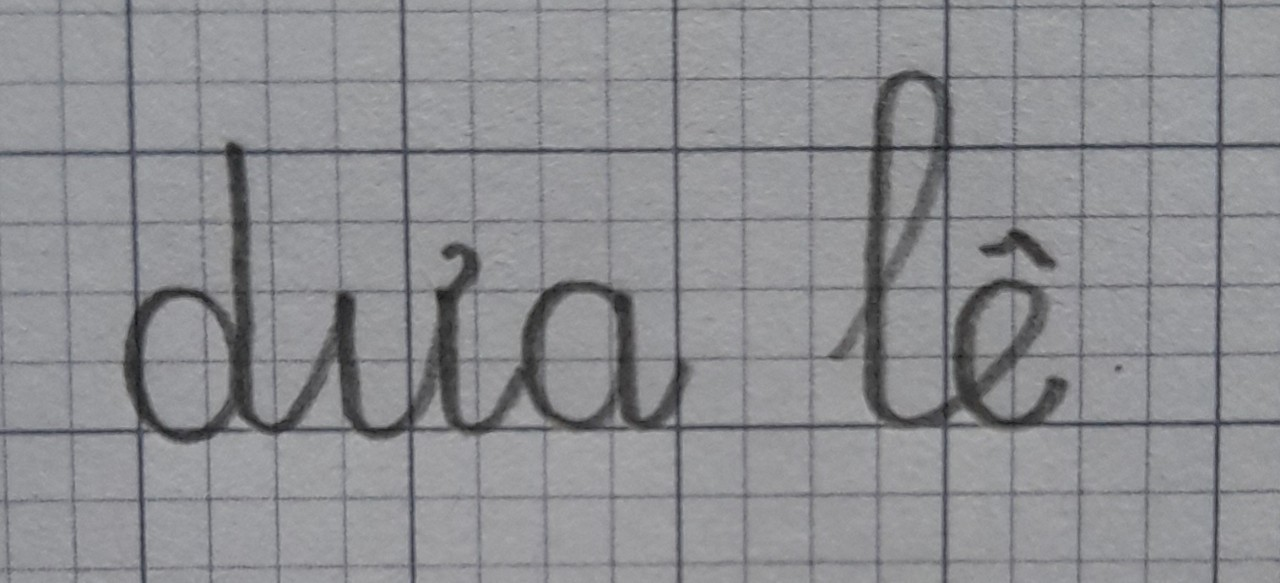 dưa lê